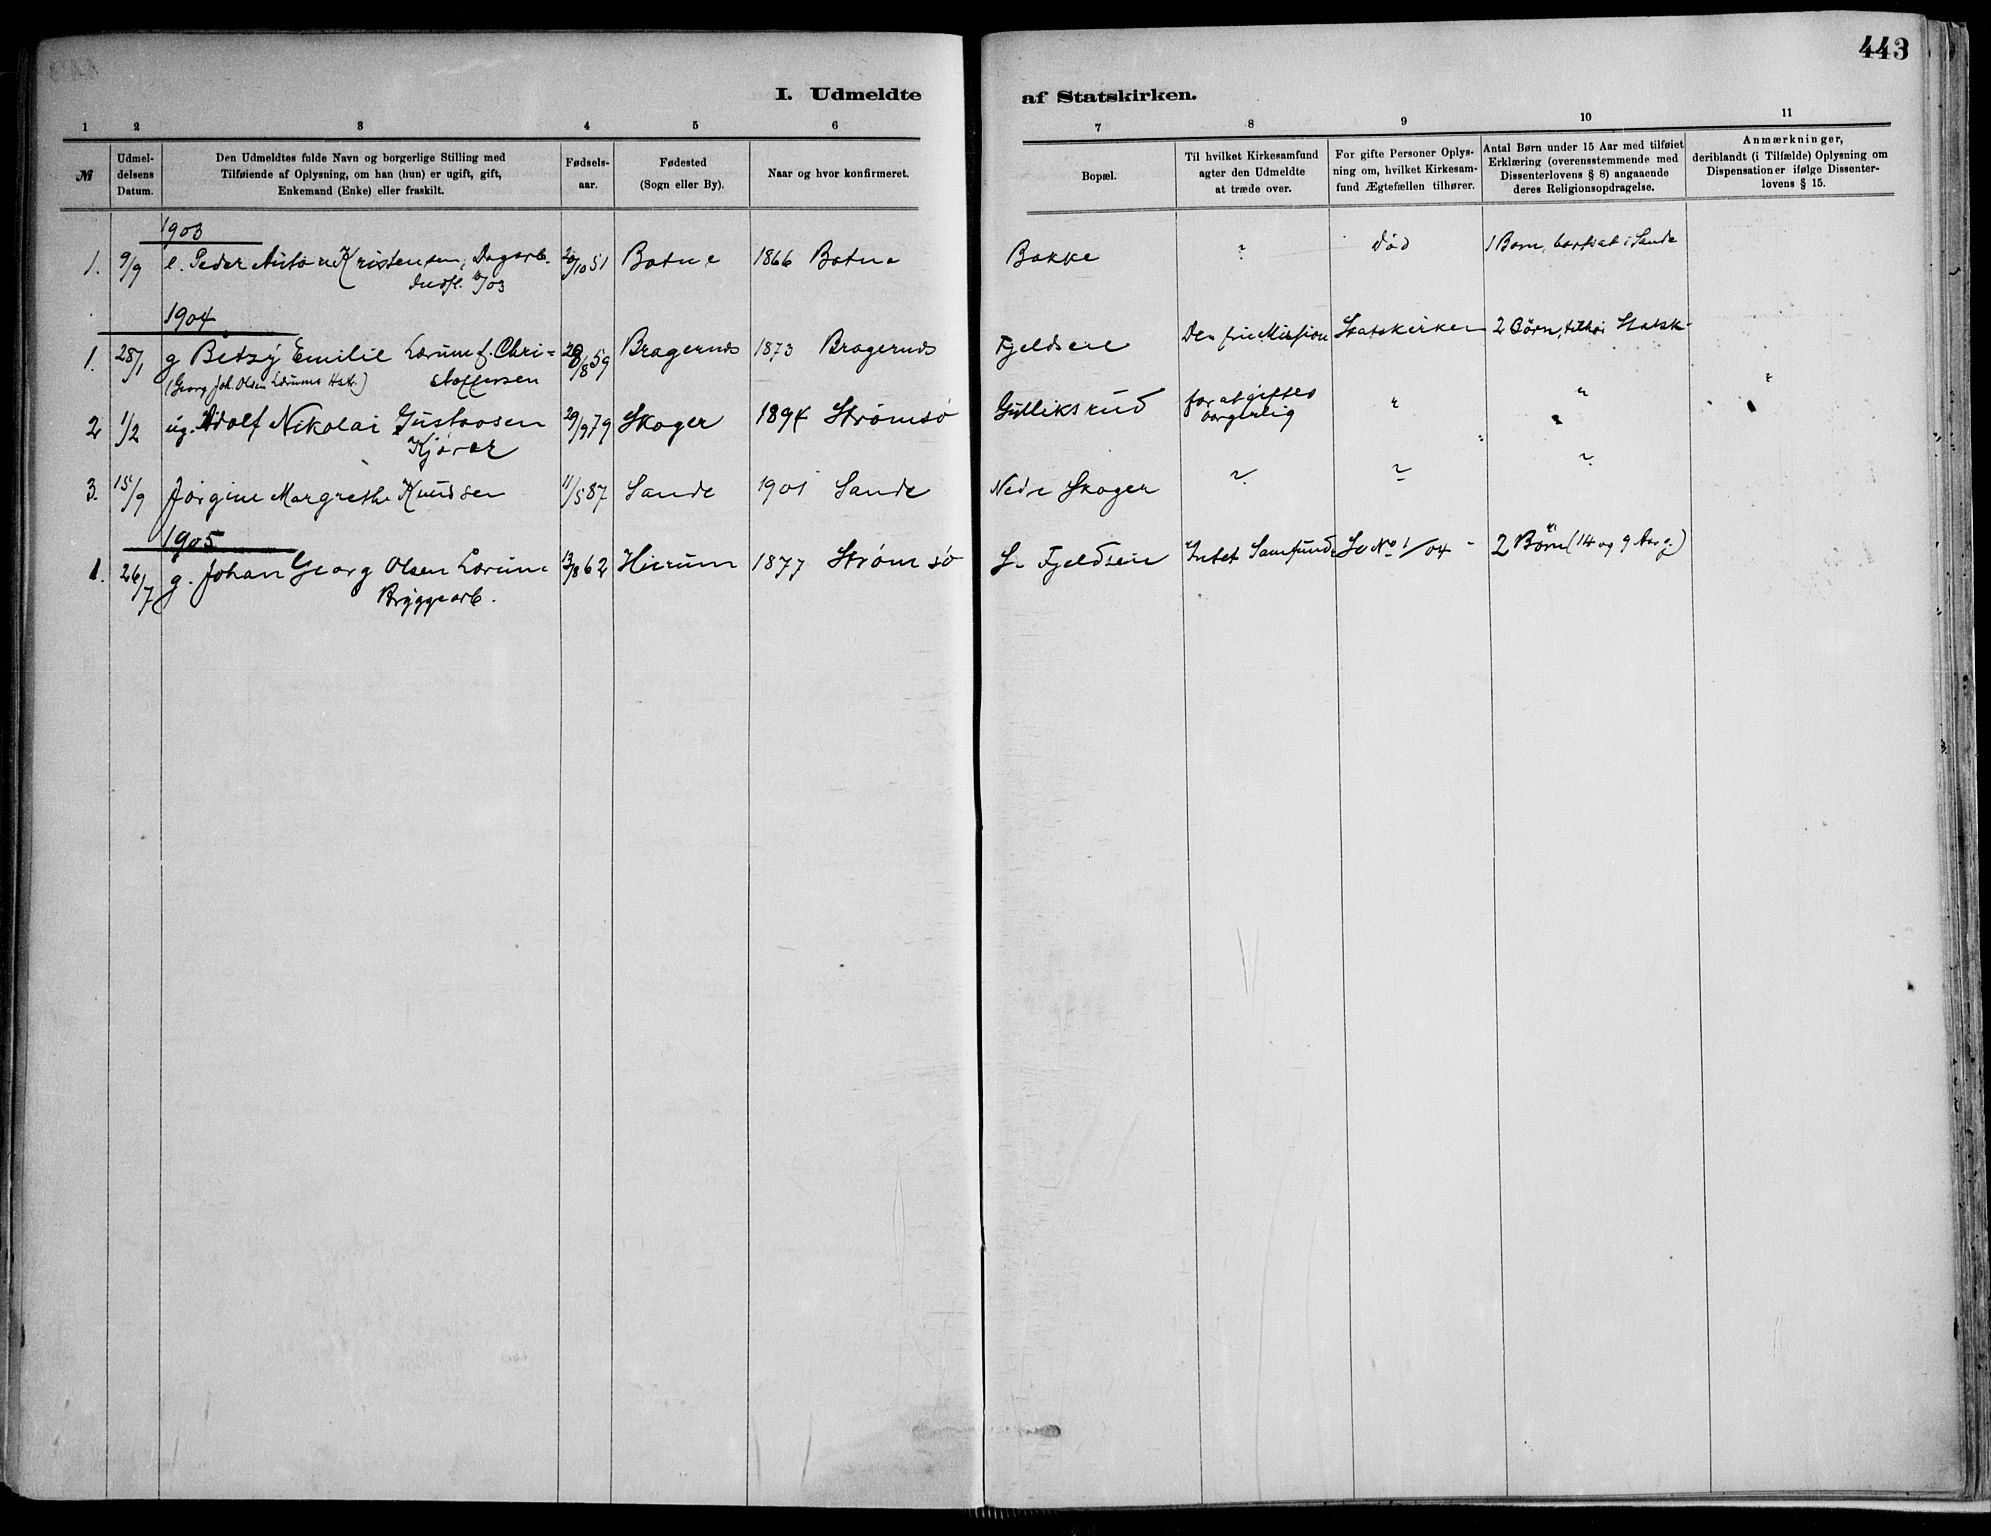 443
I. Udmeldte af Statskirken.
1 2 3 4 5 6 7 8 9 10 11
№
Udmel-
delsens
Datum.
Den Udmeldtes fulde Navn og borgerlige Stilling med
Tilføiende af Oplysning, om han (hun) er ugift, gift,
Enkemand (Enke) eller fraskilt.
Fødsels-
aar.
Fødested
(Sogn eller By).
Naar og hvor konfirmeret.
Bopæl.
Til hvilket Kirkesamfund
agter den Udmeldte
at træde over.
For gifte Personer Oplys-
ning om, hvilket Kirkesam-
fund Ægtefællen tilhører.
Antal Børn under 15 Aar med tilføiet
Erklæring (overensstemmende med
Dissenterlovens § 8) angaaende
deres Religionsopdragelse.
Anmærkninger,
deriblandt (i Tilfælde) Oplysning om
Dispensationer ifølge Dissenter-
lovens § 15.
1903
1. 9/9 e. Peder Anton Kristensen, Dagarb. 20/10 51 Botne 1866 Botne Bakke ? død 1 Barn, bortsat i Sande
Indfl. /03
1904
1. 28/1 g Betzy Emilie Lærum f. Chri- 28/8 59 Bragernes 1873 Bragernes Fjeldseie Den frie Mission Statskirken 2 Børn, tilhør Statsk.
(Georg Joh. Olsen Lærums Hst.) stoffersen
2 1/2 ug. Adolf Nikolai Gustavsen 29/9 79 Skoger 1894 Strømsø Gulliksrud for at giftes " "
Kjører borgerlig
3. 15/9 Jørgine Margrethe Knudsen 11/5 87 Sande 1901 Sande Nedre Skoger ~ ~ ~
1905
1. 26/7 g. Johan Georg Olsen Lærum 13/8 62 Hurum 1877 Strømsø Fjeldseie Intet Samfund Se No 1/04 - 2 Børn (14 og 9 Aar g.)
Bryggearb.